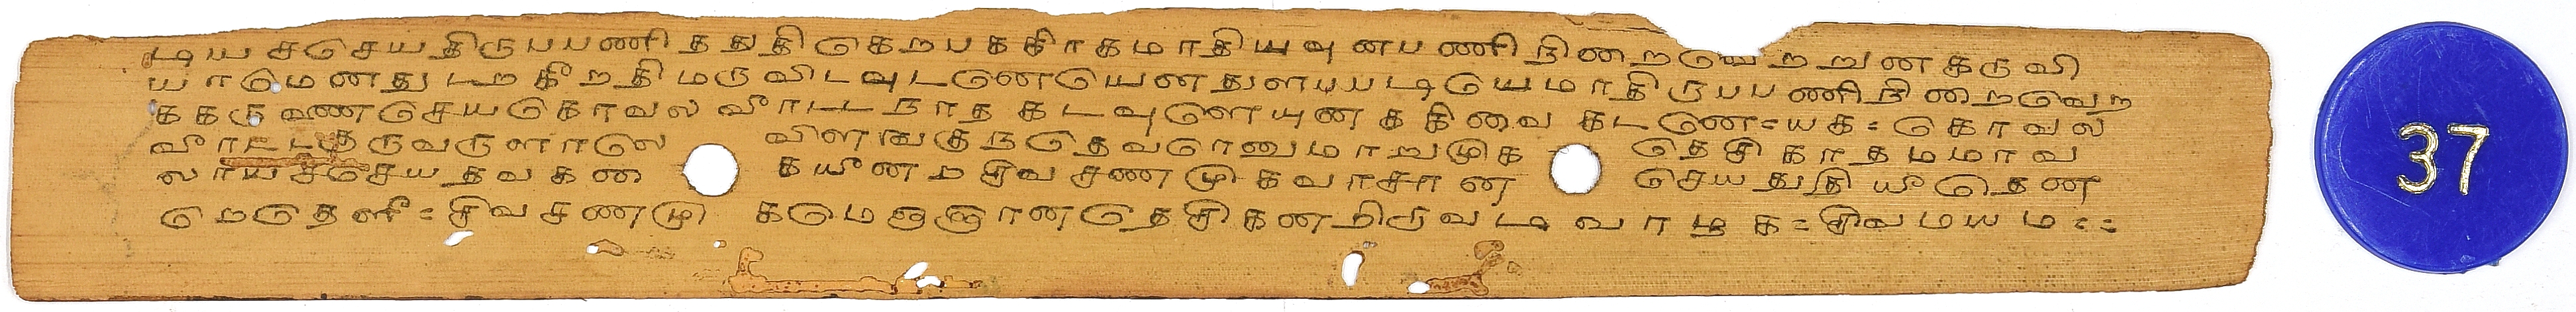 டியசசெயதிருபபணிததுதிகெறபககிாகமாதியவுனபணிநிறைவெறறுனகருவி
யாமெனதுடறகீறதிமருவிடவுடனெயெனதுளபபடியெமாதிருபபணிநிறைவெற
ககருவணசெயகொவலவீாடடநாதகடவுளெயுனககிவைகடனெ=யக=கொவல
வீாடடததருவருளாலெ விளஙகுநதெவரெனுமாறுமுக தெசிகாதமமாவ
லாயசசெயதவகண கயீனறசிவசணமுகவாசான செயதுதியீதெண
றெதெளி=சிவசணமு கமெஞஞானதெசிகணறிருவடிவாழக=சிவமயம==
37